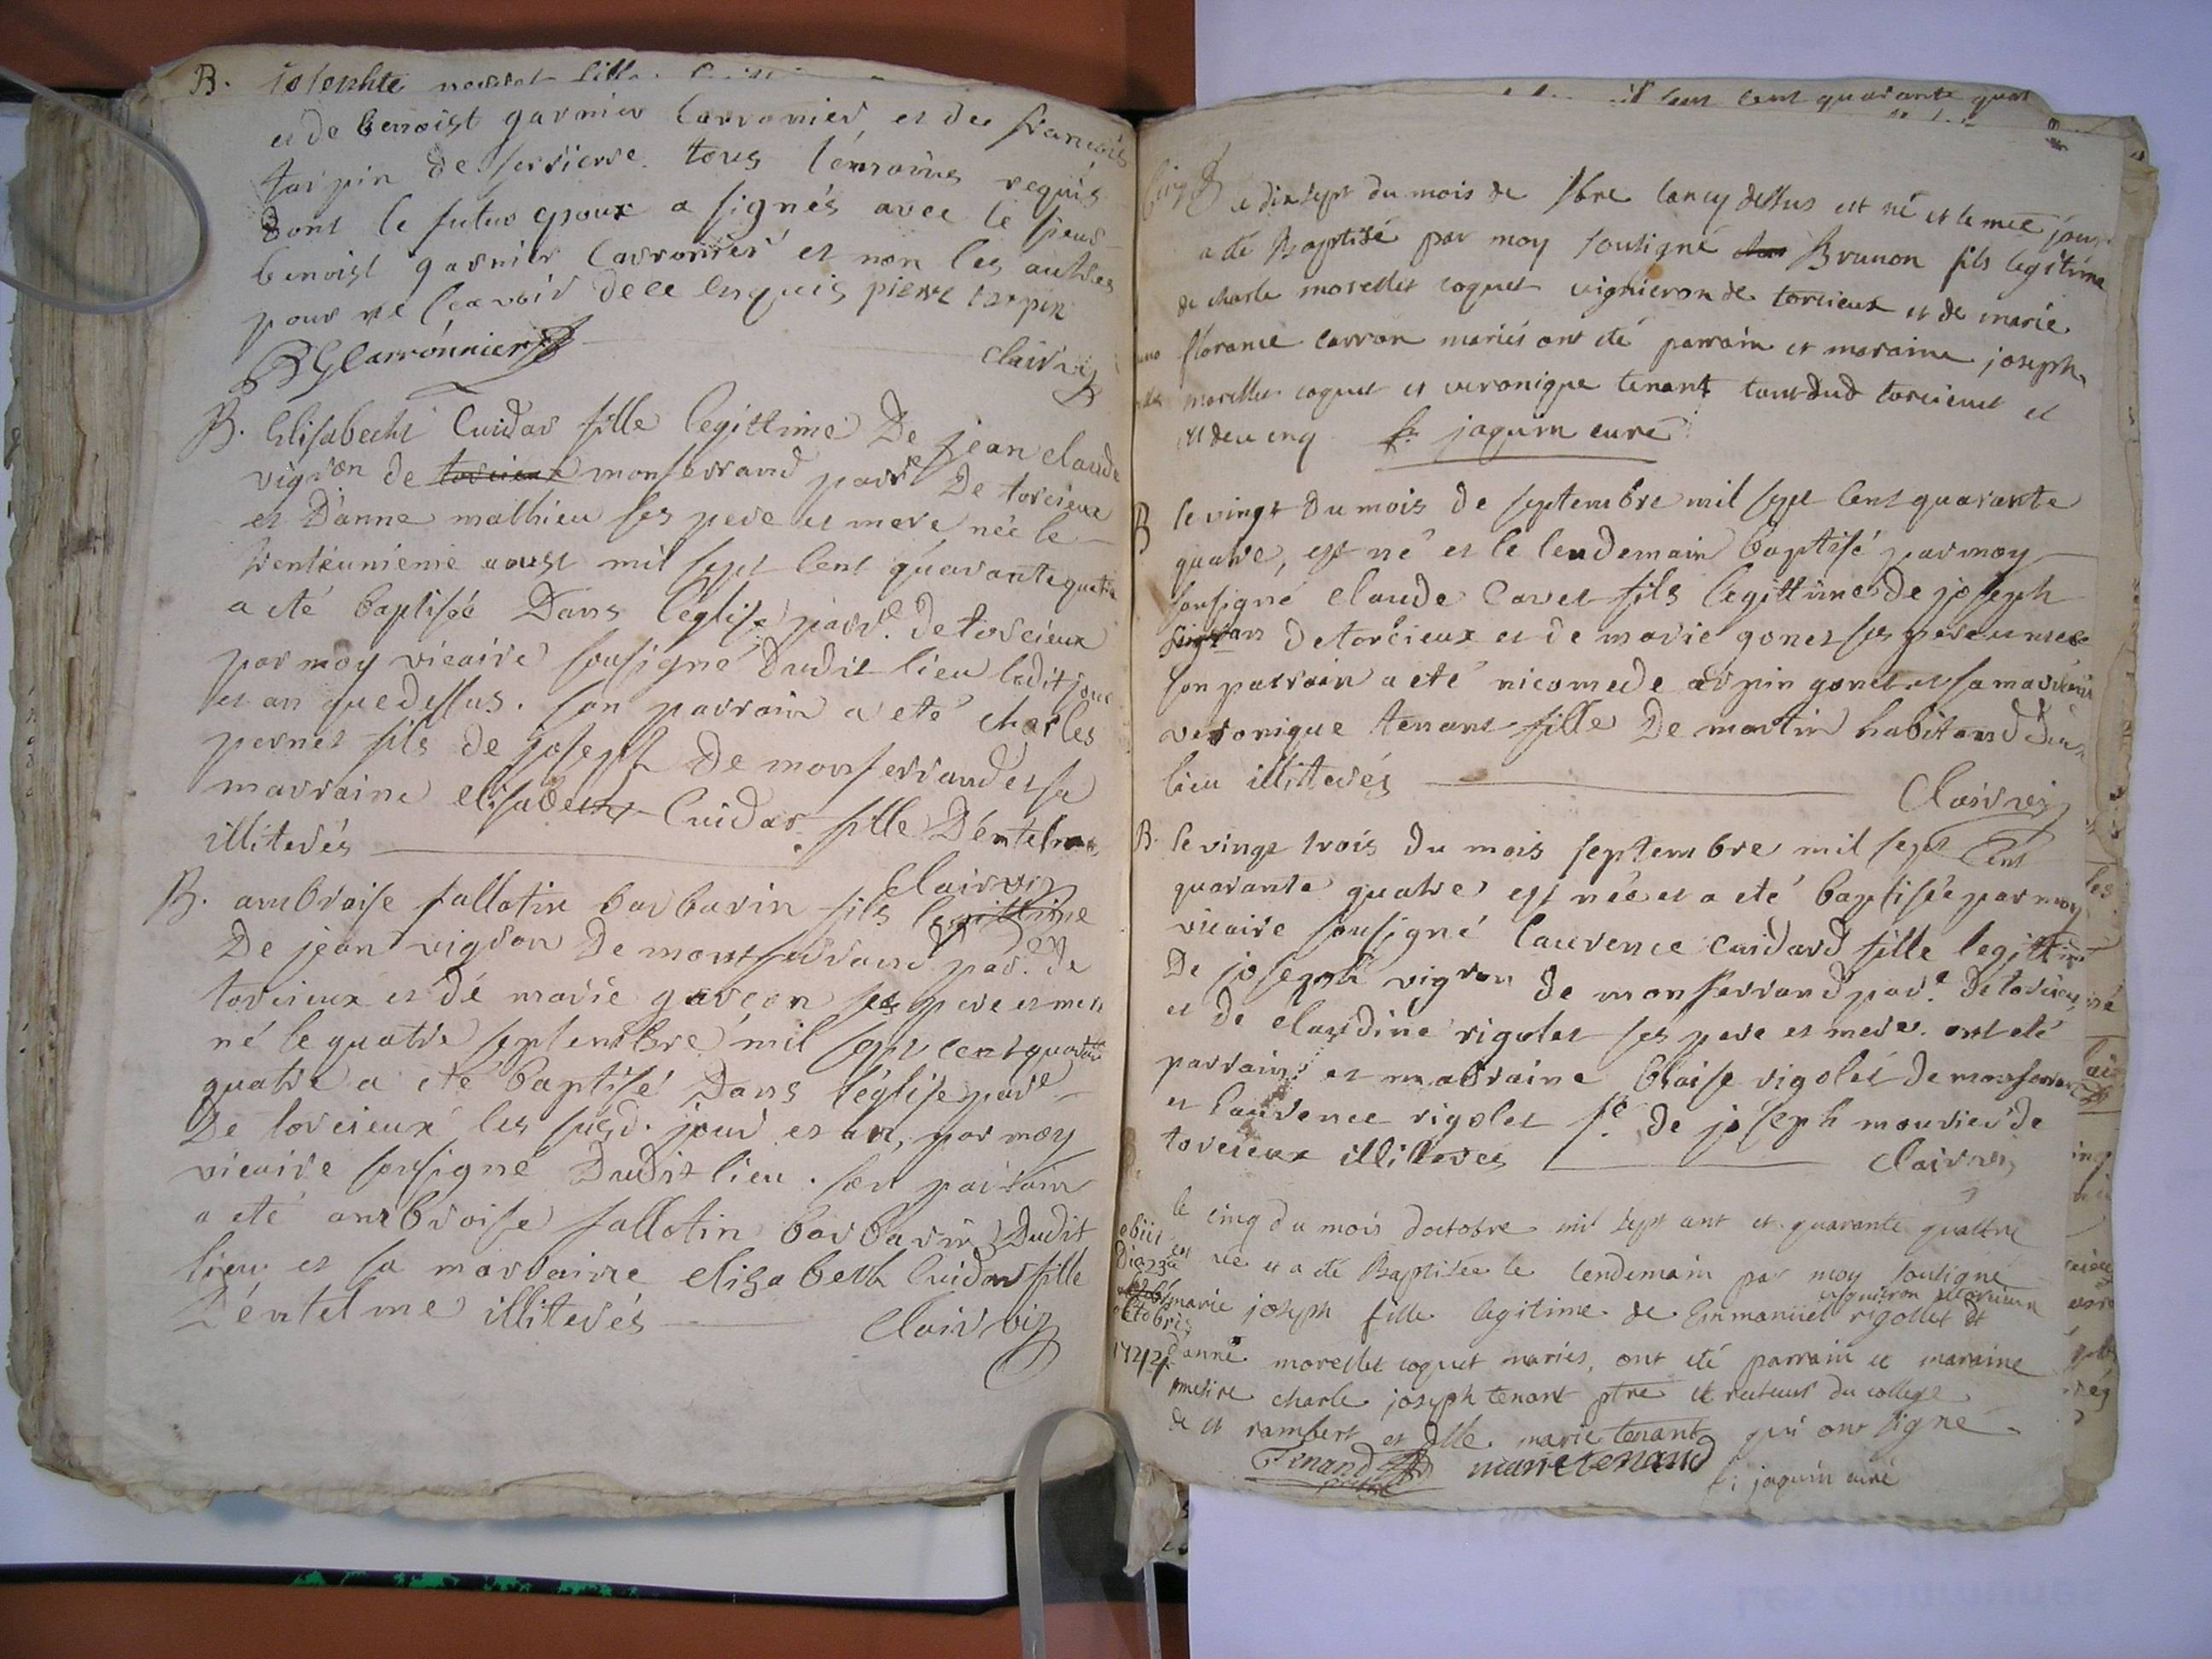 B. josephte
et de benoist garnier carronnier et de francois
tarpin de serriere tous témoins requis
dont le futur epoux a signés avec le sieur
benoist garnier carronnier et non les autres
pour ne sçavoir de ce enquis pierre tarpin
BGCarrónnier
Clairvy
B. Elisabecht Cuidar fille legittime De jean claude
vigron de torcieux monferrand parr.e De torcieux
et D'anne mathieu ses pere et mere née le
trenteunieme aoust mil sept cent quarantequatre
a eté baptisée Dans l'eglise parr.e de torcieux
par moy vicaire sousigné dudit lieu ledit jour
et an que dessus. son parrain a eté charles
pernet fils de joseph De monferrand et sa
marraine elisabecht Cuidar fille D'entelme
illiterés
Clairvy
B. ambroise fallatin barbarin fils legittime
De jean vigron De montferrand par. de
torcieux et dé marie garçon ses pere et mere
né le quatre septembre mil sept cent quarante
quatre a eté baptisé Dans l'église parr.e
De torcieux les susd. jour et an, par moy
vicaire sousigné Dudit lieu. son parrain
a eté ambroise fallatin barbarin Dudit
lieu et sa marraine elisabeth Cuidar fille
D'entelme illiterés
Clairvy
sept cent quarante quat
Le dixsept du mois de 7bre lancy dessus est né et le mee jour
a été Baptisé par moy sousigné Brunon fils legitime
de charle morellet coquet vigneron de torcieux et de marie
florance carron mariés ont été parrain et maraine joseph
morellet coquet et veronique tenant tout dud torcieux et
f. jaquin curé
B le vingt Du mois De septembre mil sept cent quarante
quatre, est né et le lendemain baptisé par moy
sousigné claude Cavet fils legittime de joseph
vigron de torcieux et de marie gonet ses pere et mere
son parrain a eté nicomede arpin gonet et sa marraine
veronique tenant fille De martin habitand du
lieu illiterés
Clairvy
B. le vingt trois Du mois septembre mil sept cent
quarante quatre est née et a eté baptisée par moy
vicaire sousigné laurence cuidard fille legittime
De joseph vigron de monferrand par.e de torcieux
et De claudine rigolet ses pere et mere. ont eté
parrain et marraine blaise rigolet de monferrand
et laurence rigolet f.e de joseph mourier de
torcieux illiterés
Clairvy
le cinq du mois doctobre mil sept cent et quarante quattre
obiit
est née et a été Baptisée le lendemain par moy sousigné
die 23a
vigneron torcieux
marie joseph fille legitime de Emmanuel rigollet et
octobris
1744
danne morellet coquet mariés, ont été parrain et maraine
messire charle joseph tenant ptre et recteur du college
de st rambert et dlle marie tenant qui ont signé
Tenand
prêtre
marie tenand
f. jaquin curé